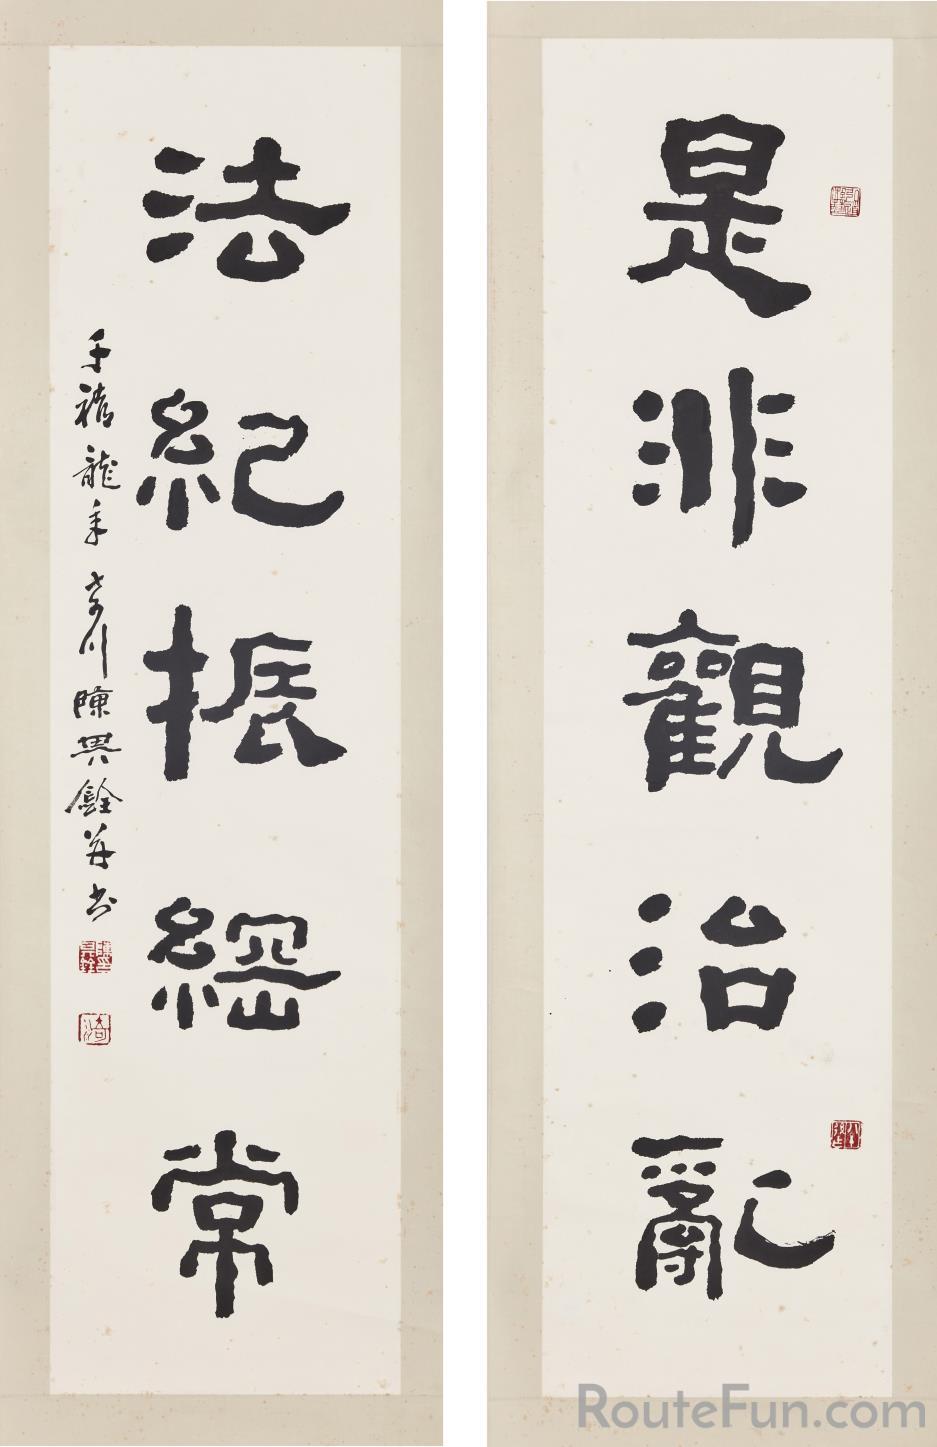 是非觀治亂
法紀振綱常
千禧龍年 岑川陳興銓并書
RouteFun.com